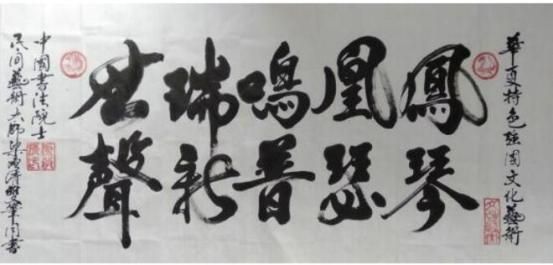 華夏特色强國文化藝術
鳳凰鳴瑞世
琴瑟普新聲
中國書法院士
民間藝術大師梁